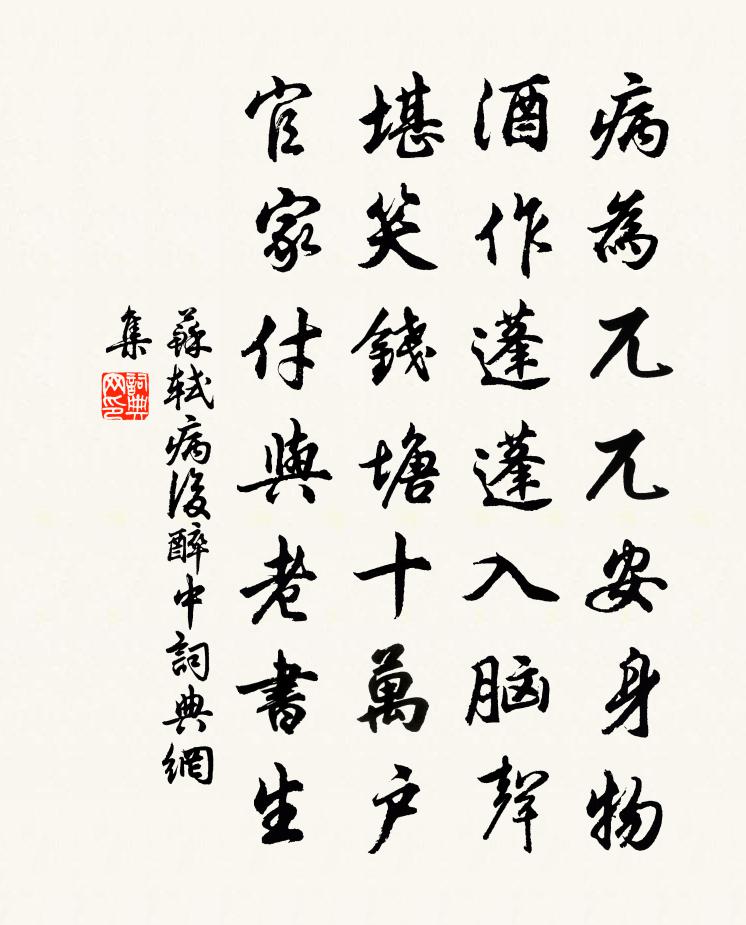 病為兀兀安身物
酒作蓬蓬入脑聲
堪笑錢塘十萬户
官家付與老書生
蘇軾病後醉中詞典網
集
詞典
网印